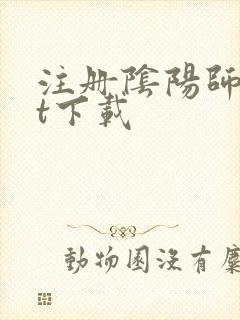 注册陰陽師
t下載
動物園沒有麋